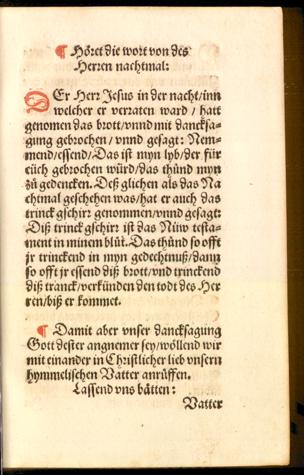 ¶ Höret die wort von des
Herren nachtmal:
DEr Herr Jesus in der nacht/inn
welcher er verraten ward / hatt
genomen das brott/vnnd mit dancksa-
gung gebrochen / vnnd gesagt: Nem-
mend/essend/Das ist myn lyb/der für
eüch gebrochen würd/das thünd myn
zů gedencken. Deß glichen als das Na
chtmal geschehen was/hat er auch das
trinckgschirr genommen/vnnd gesagt:
Diß trinckgschirr ist das Nüw testa-
ment in minem blůt. Das thünd so offt
jr trinckend in myn gedechtnuß/dann
so offt jr essend diß brott/vnd trinckend
diß tranck/verkünden den tod des Her
ren/biß er kommet.
¶ Damit aber vnser dancksagung
Gott dester angnemer sey/wöllend wir
mit einander in Christlicher lieb vnsern
hymmelischen Vatter anrüffen.
Lassend vns bätten:
Vatter